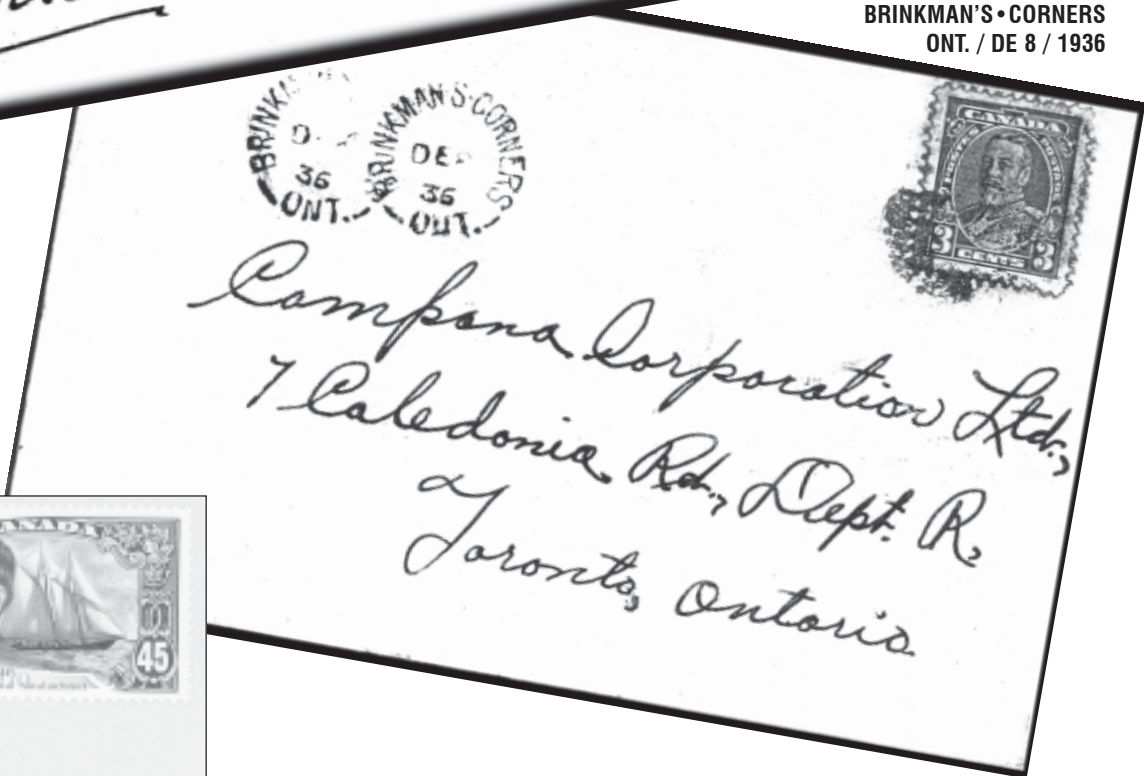 BRINKMAN'S•CORNERS
ONT. / DE 8 / 1936
BRINKM
36
ONT.
BRINKMAN'S·CORNERS
DE
36
ONT.
CANADA
POSTES POSTAGE
3 3
CENTS
Campana Corporation Ltd.,
7 Caledonia Rd., Dept. R,
Toronto, Ontario
CANADA
45